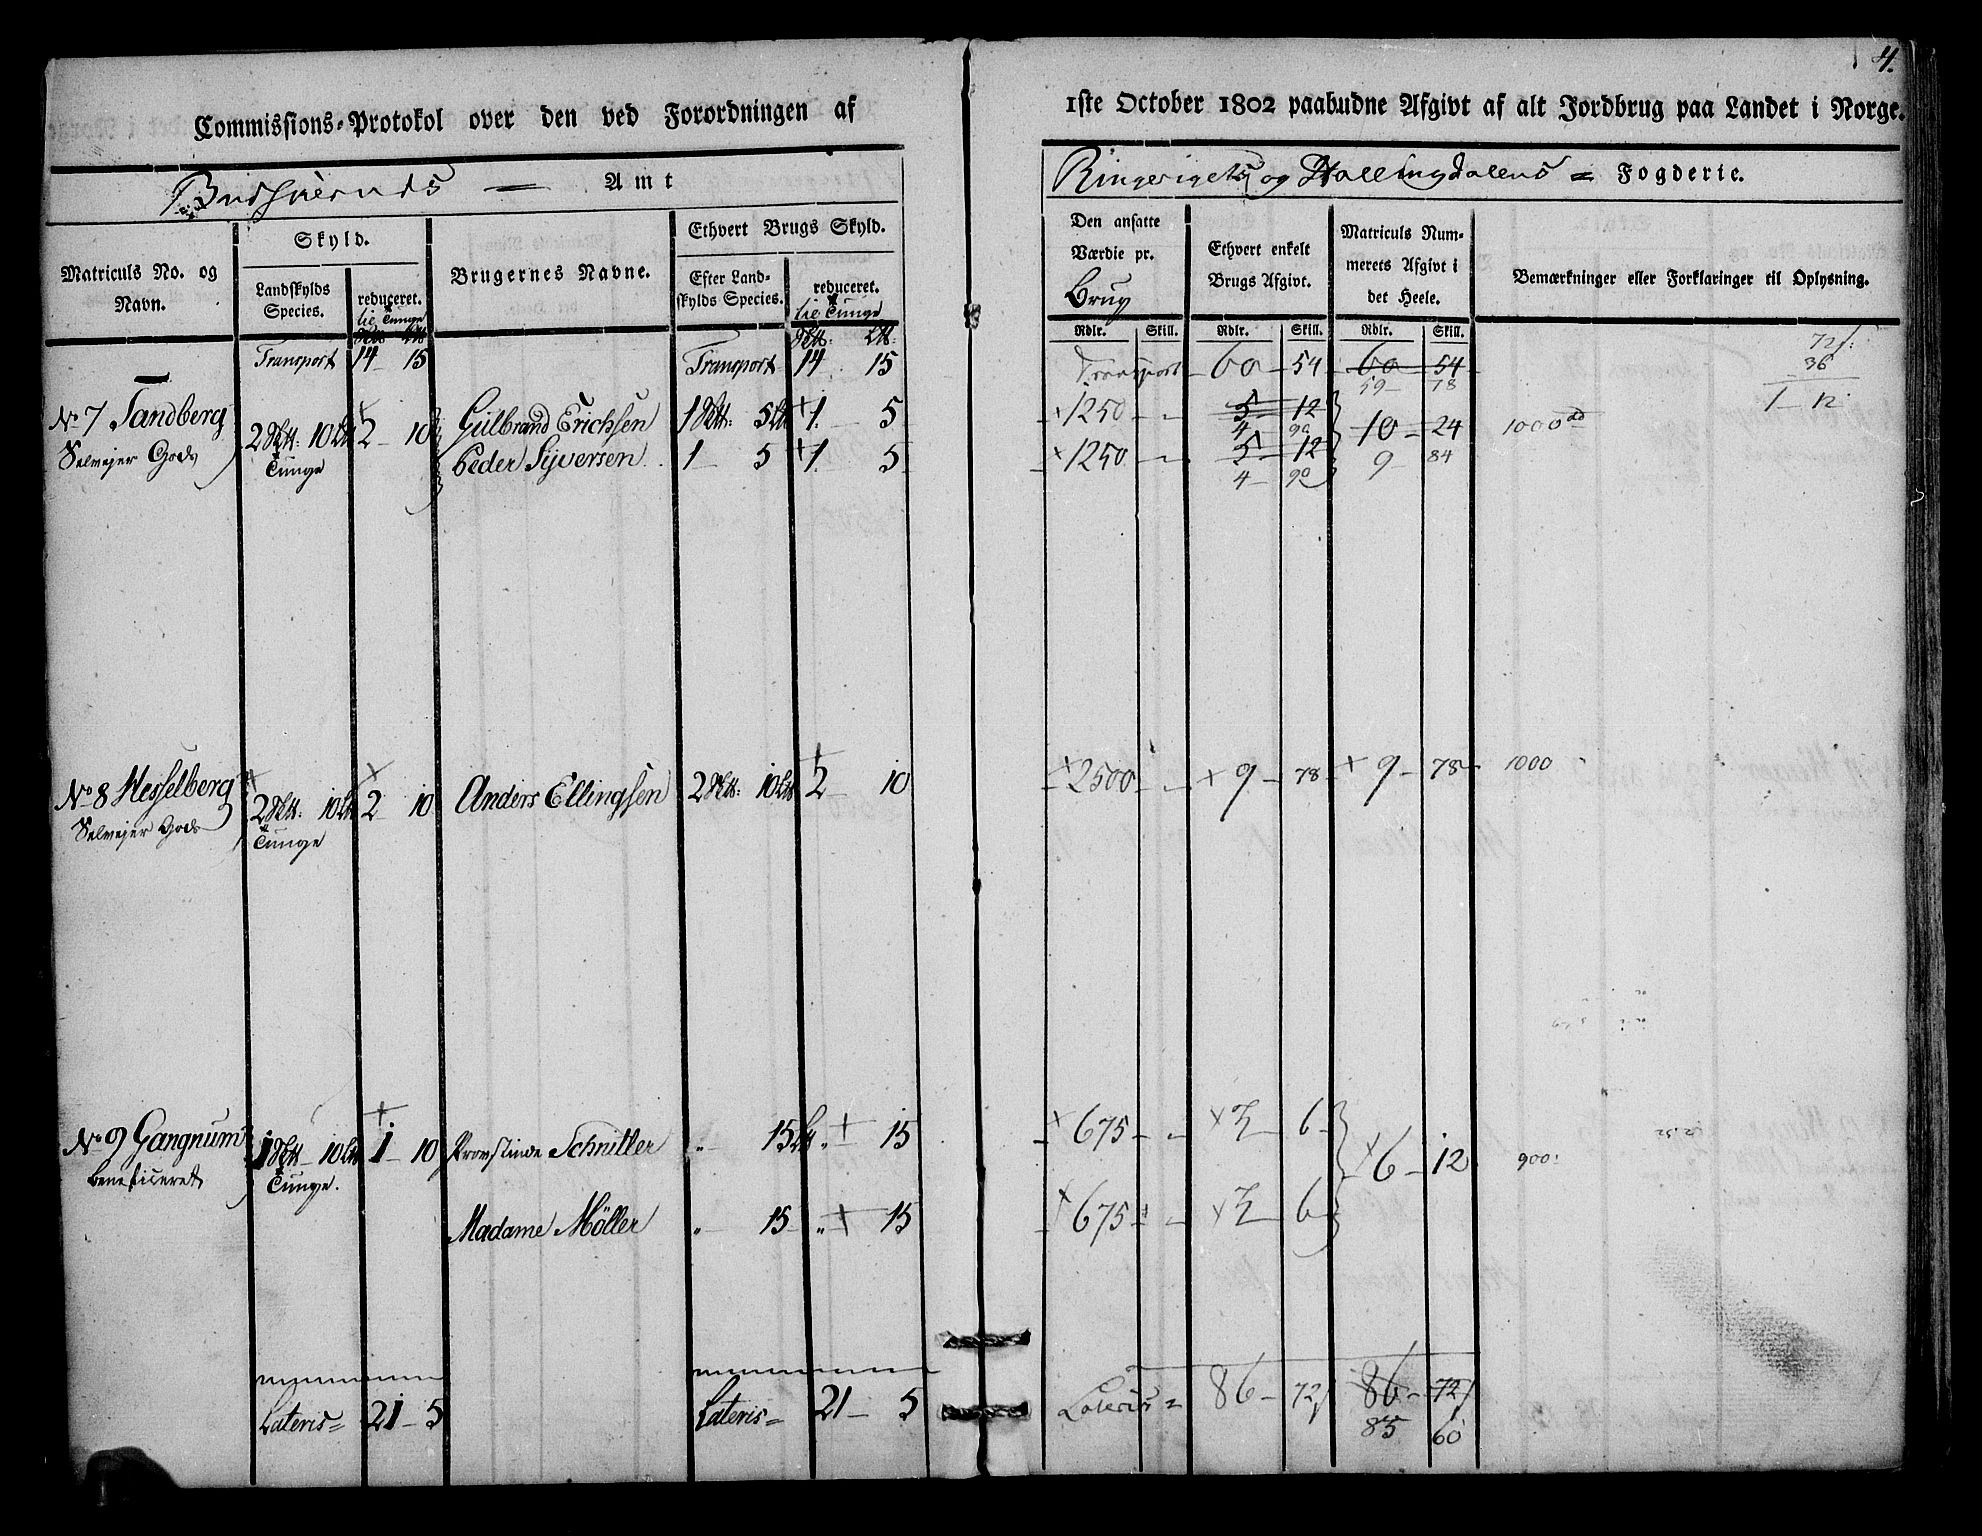 4.
Commissions-Protokol over den ved Forordningen af
1ste October 1802 paabudne Afgivt af alt Jordbrug paa Landet i Norge.
Buskeruds = Amt
Ringerigets og Hallingdalens = Fogderie.
Matriculs No. og Navn.
Skyld.
Landskylds Species.
reduceret. Tunge
Brugernes Navne.
Ethvert Brugs Skyld.
Efter Landskylds Species.
reduceret. Tunge
Den ansatte Værdie pr. Brug
Rdlr. Skill.
Ethvert enkelt Brugs Afgivt.
Rdlr. Skill.
Matriculs Nummerets Afgivt i det Heele.
Rdlr. Skill.
Bemærkninger eller Forklaringer til Oplysning.
Transport 14 15 Transport 14 15 Transport 60 54 60 54
59 78
72
36
1 12
No 7 Sandberg 2 10 2 10 Gulbrand Erichsen 1 5 1 5 1250 5 12 10 24 1000
4 90
Selvejer Gods Tunge Peder Syversen 1 5 1 5 1250 5 12 9 84
4 90
No 8 Hesselberg 2 10 2 10 Anders Ellingsen 2 10 2 10 2500 9 78 9 78 1000
Selvejer Gods Tunge
No 9 Gangnum 1 10 1 10 Provstinde Schnitler " 15 " 15 675 3 6 6 12 900
Beneficeret Tunge.
Madame Möller " 15 " 15 675 3 6
Lateris = 21 5 Lateris = 21 5 Lateris = 86 72 86 72
85 60